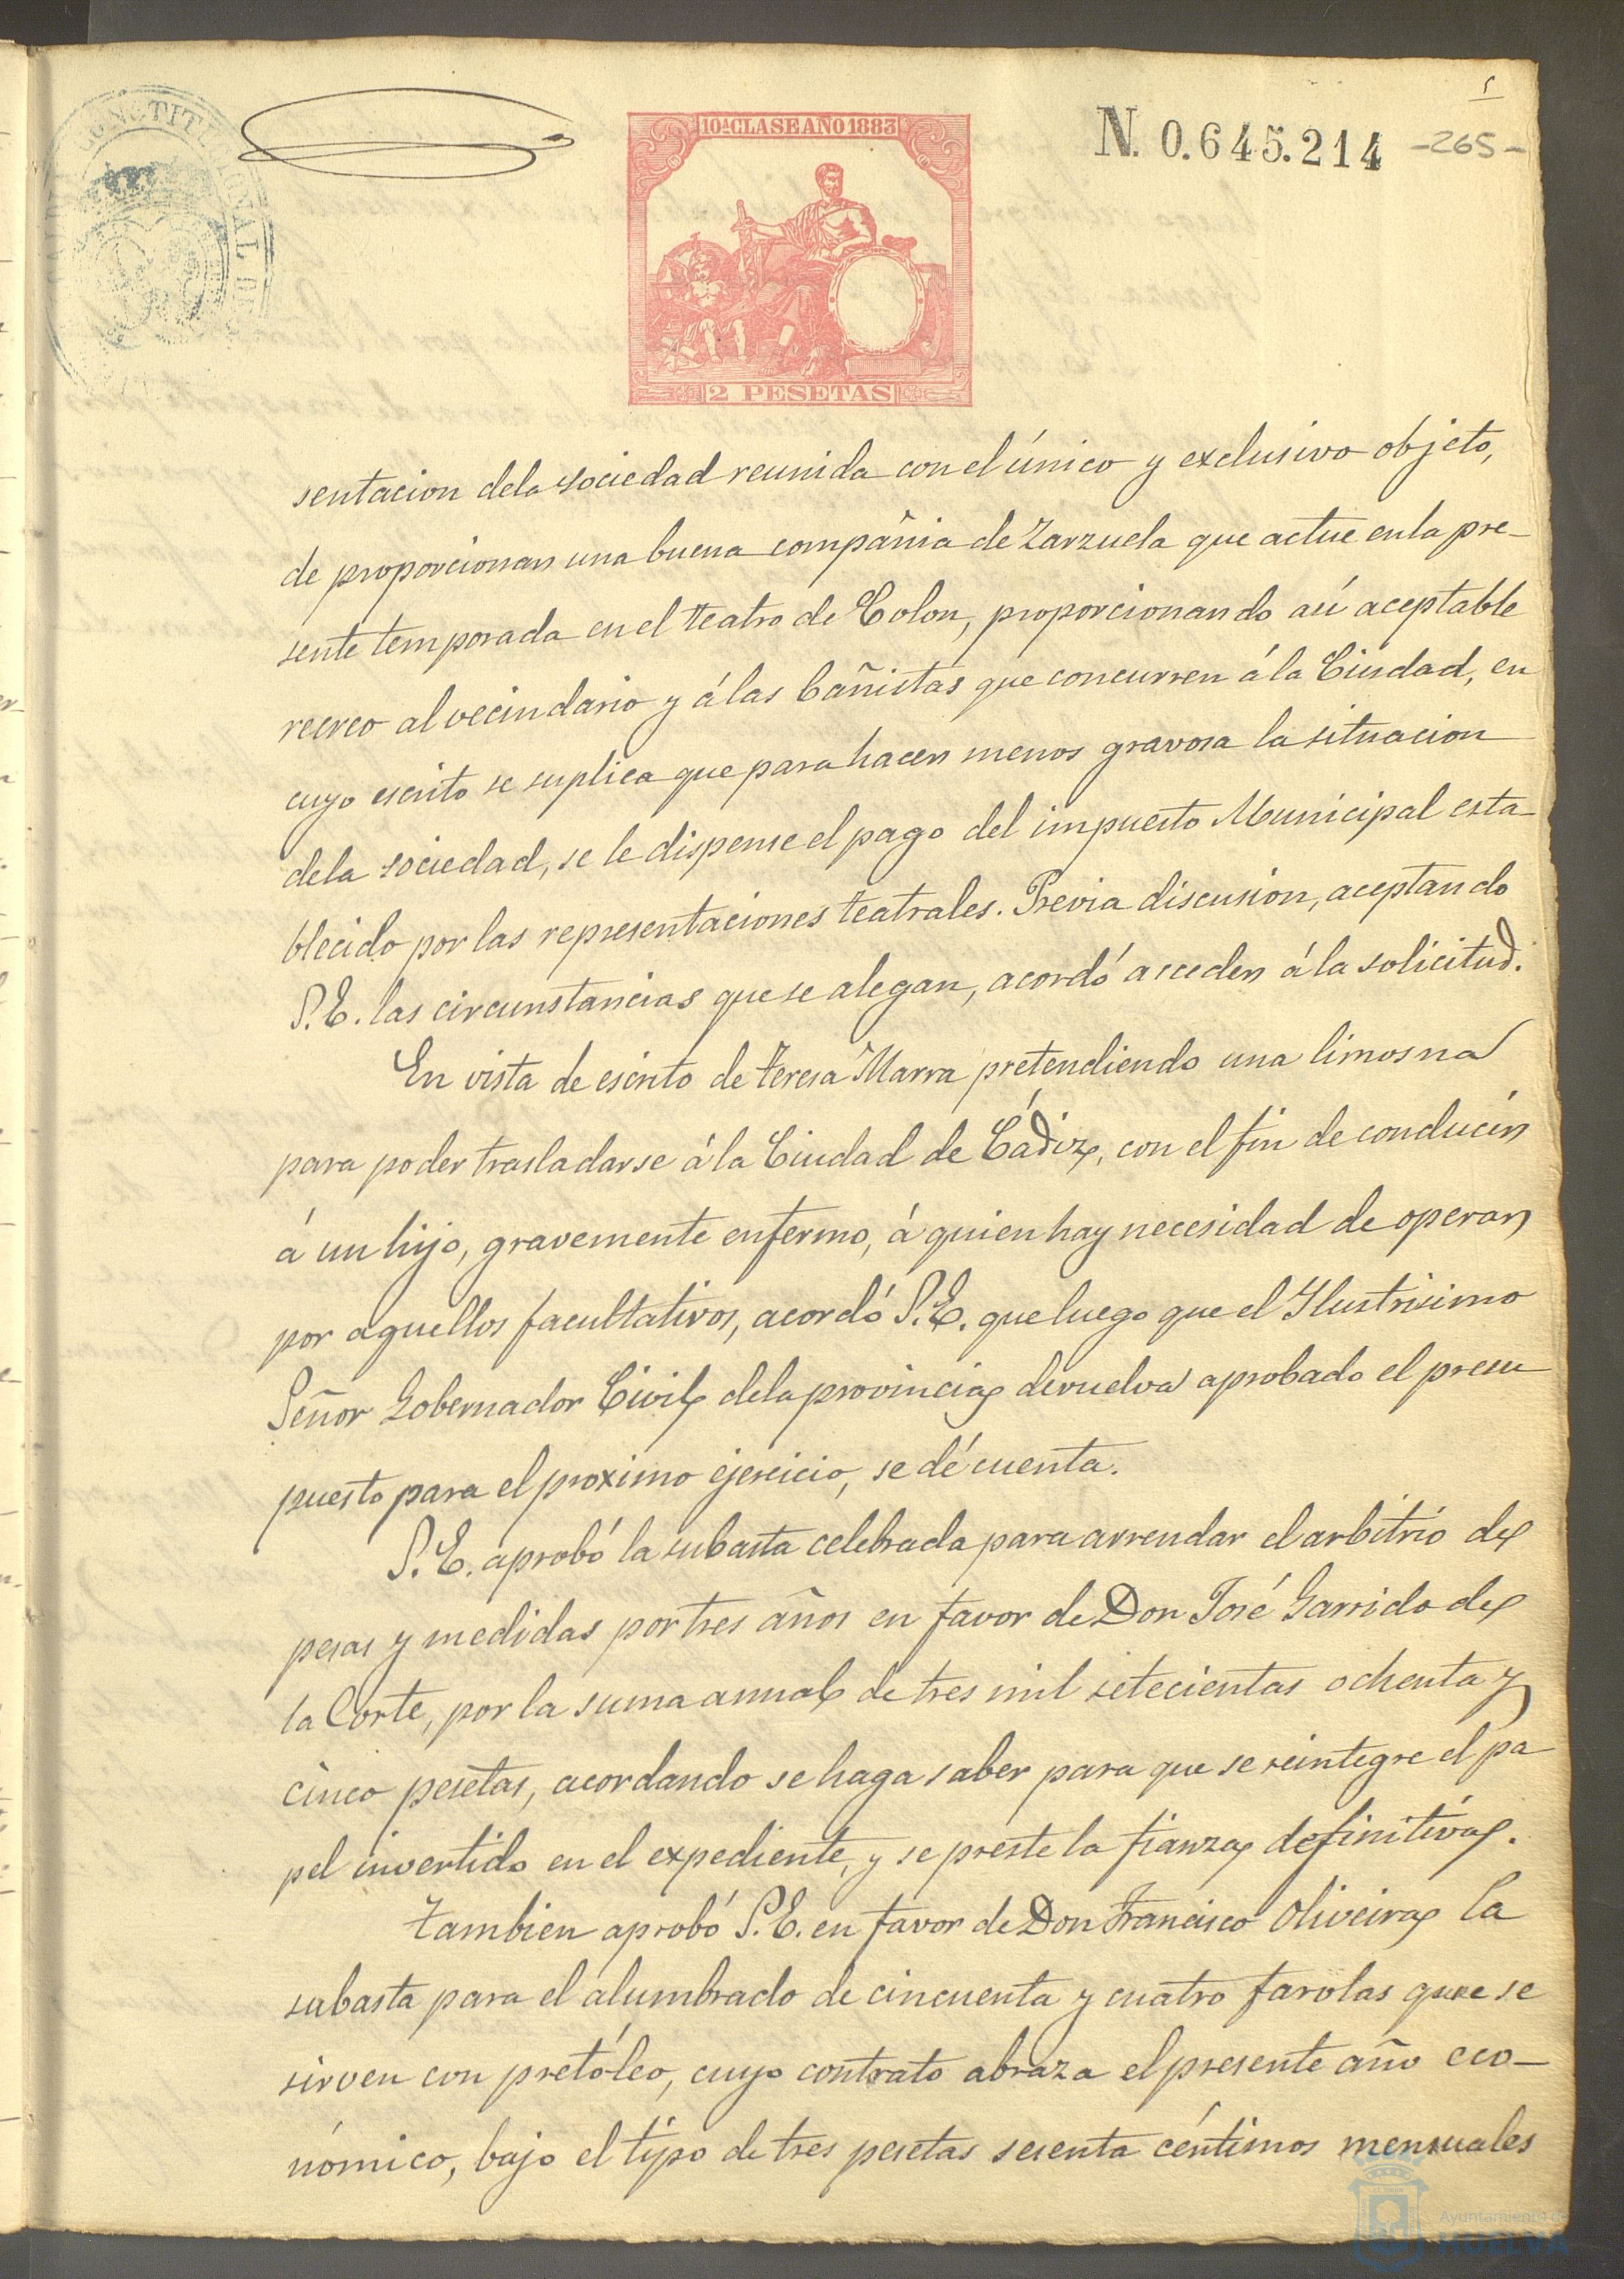 5
10ª CLASE AÑO 1883
N. 0.645.214
-265-
CONSTITUCIONAL
2 PESETAS
sentacion dela sociedad reunida con el único y exclusivo objeto,
de proporcionar una buena compañia de Zarzuela que actue en la pre-
sente temporada en el teatro de Colon, proporcionando asi aceptable
recreo al vecindario y á las bañistas que concurren á la Ciudad, en
cuyo escrito se suplica que para hacer menos gravosa la situacion
dela sociedad, se le dispense el pago del impuesto Municipal esta-
blecido por las representaciones teatrales. Previa discusion, aceptando
S.E. las circunstancias que se alegan, acordó acceder á la solicitud.
En vista de escrito de Teresa Marra pretendiendo una limosna
para poder trasladarse á la Ciudad de Cádiz, con el fin de conducir
á un hijo, gravemente enfermo, á quien hay necesidad de operar
por aquellos facultativos, acordó S.E. que luego que el Ilustrisimo
Señor Gobernador Civil dela provincia devuelva aprobado el presu
puesto para el proximo ejercicio, se dé cuenta.
S.E. aprobó la subasta celebrada para arrendar el arbitrio de
pesas y medidas por tres años en favor de Don José Garrido de
la Corte, por la suma anual de tres mil setecientas ochenta y
cinco pesetas, acordando se haga saber para que se reintegre el pa
pel invertido en el expediente, y se preste la fianza definitiva.
Tambien aprobó S.E. en favor de Don Francisco Oliveira la
subasta para el alumbrado de cincuenta y cuatro farolas que se
sirven con pretóleo, cuyo contrato abraza el presente año eco-
nómico, bajo el tipo de tres pesetas sesenta céntimos mensuales
Ayuntamiento de
HUELVA